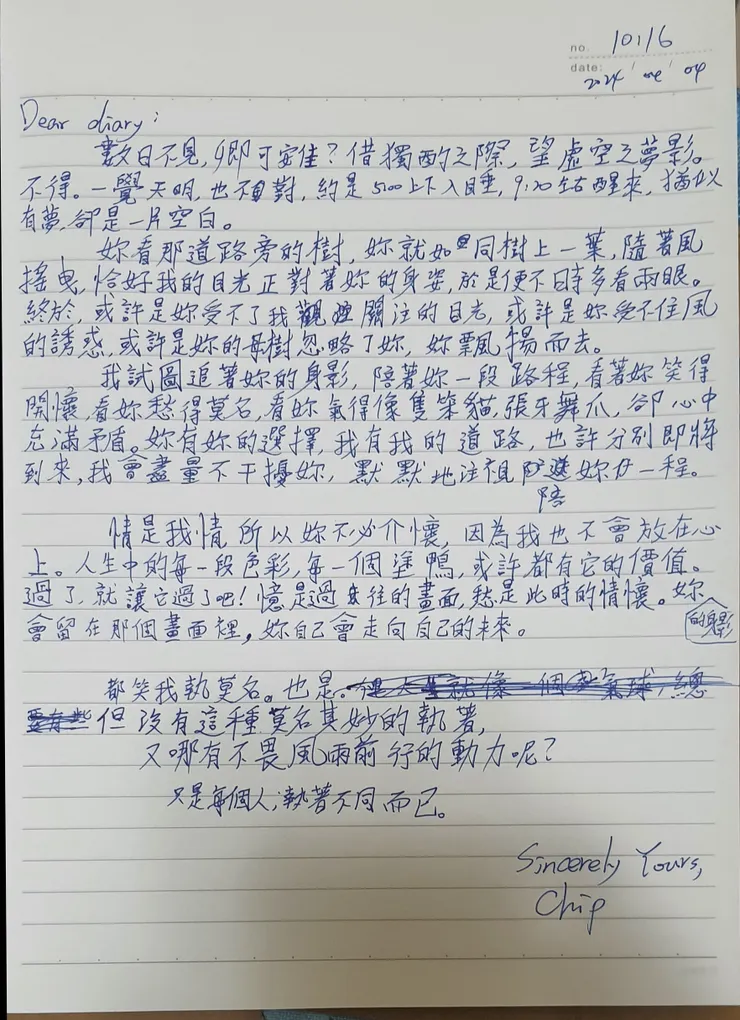 no. 10116
date: 2024 / 04 / 04
Dear diary:
數日不見,卿可安佳?借獨酌之際,望虛空之夢影。
不得。一覺天明,也不對,約是5:00上下入睡,9:20左右醒來,猶似
有夢,卻是一片空白。
妳看那道路旁的樹,妳就如同樹上一葉,隨著風
搖曳,恰好我的目光正對著妳的身姿,於是便不時多看兩眼。
終於,或許是妳受不了我關注的目光,或許是妳受不住風
的誘惑,或許是妳的母樹忽略了妳,妳飄揚而去。
我試圖追著妳的身影,陪著妳一段路程,看著妳笑得
開懷,看妳愁得莫名,看妳氣得像隻笨貓,張牙舞爪,卻心中
充滿矛盾。妳有妳的選擇,我有我的道路,也許分別即將
到來,我會盡量不干擾妳,默默地注視陪妳一程。
情是我情所以妳不必介懷,因為我也不會放在心
上。人生中的每一段色彩,每一個塗鴨,或許都有它的價值。
過了,就讓它過了吧!憶是過往的畫面,愁是此時的情懷。妳的身影
會留在那個畫面裡,妳自己會走向自己的未來。
都笑我執莫名。也是。
但沒有這種莫名其妙的執著,
又哪有不畏風雨前行的動力呢?
只是每個人,執著不同而已。
Sincerely Yours,
Chip